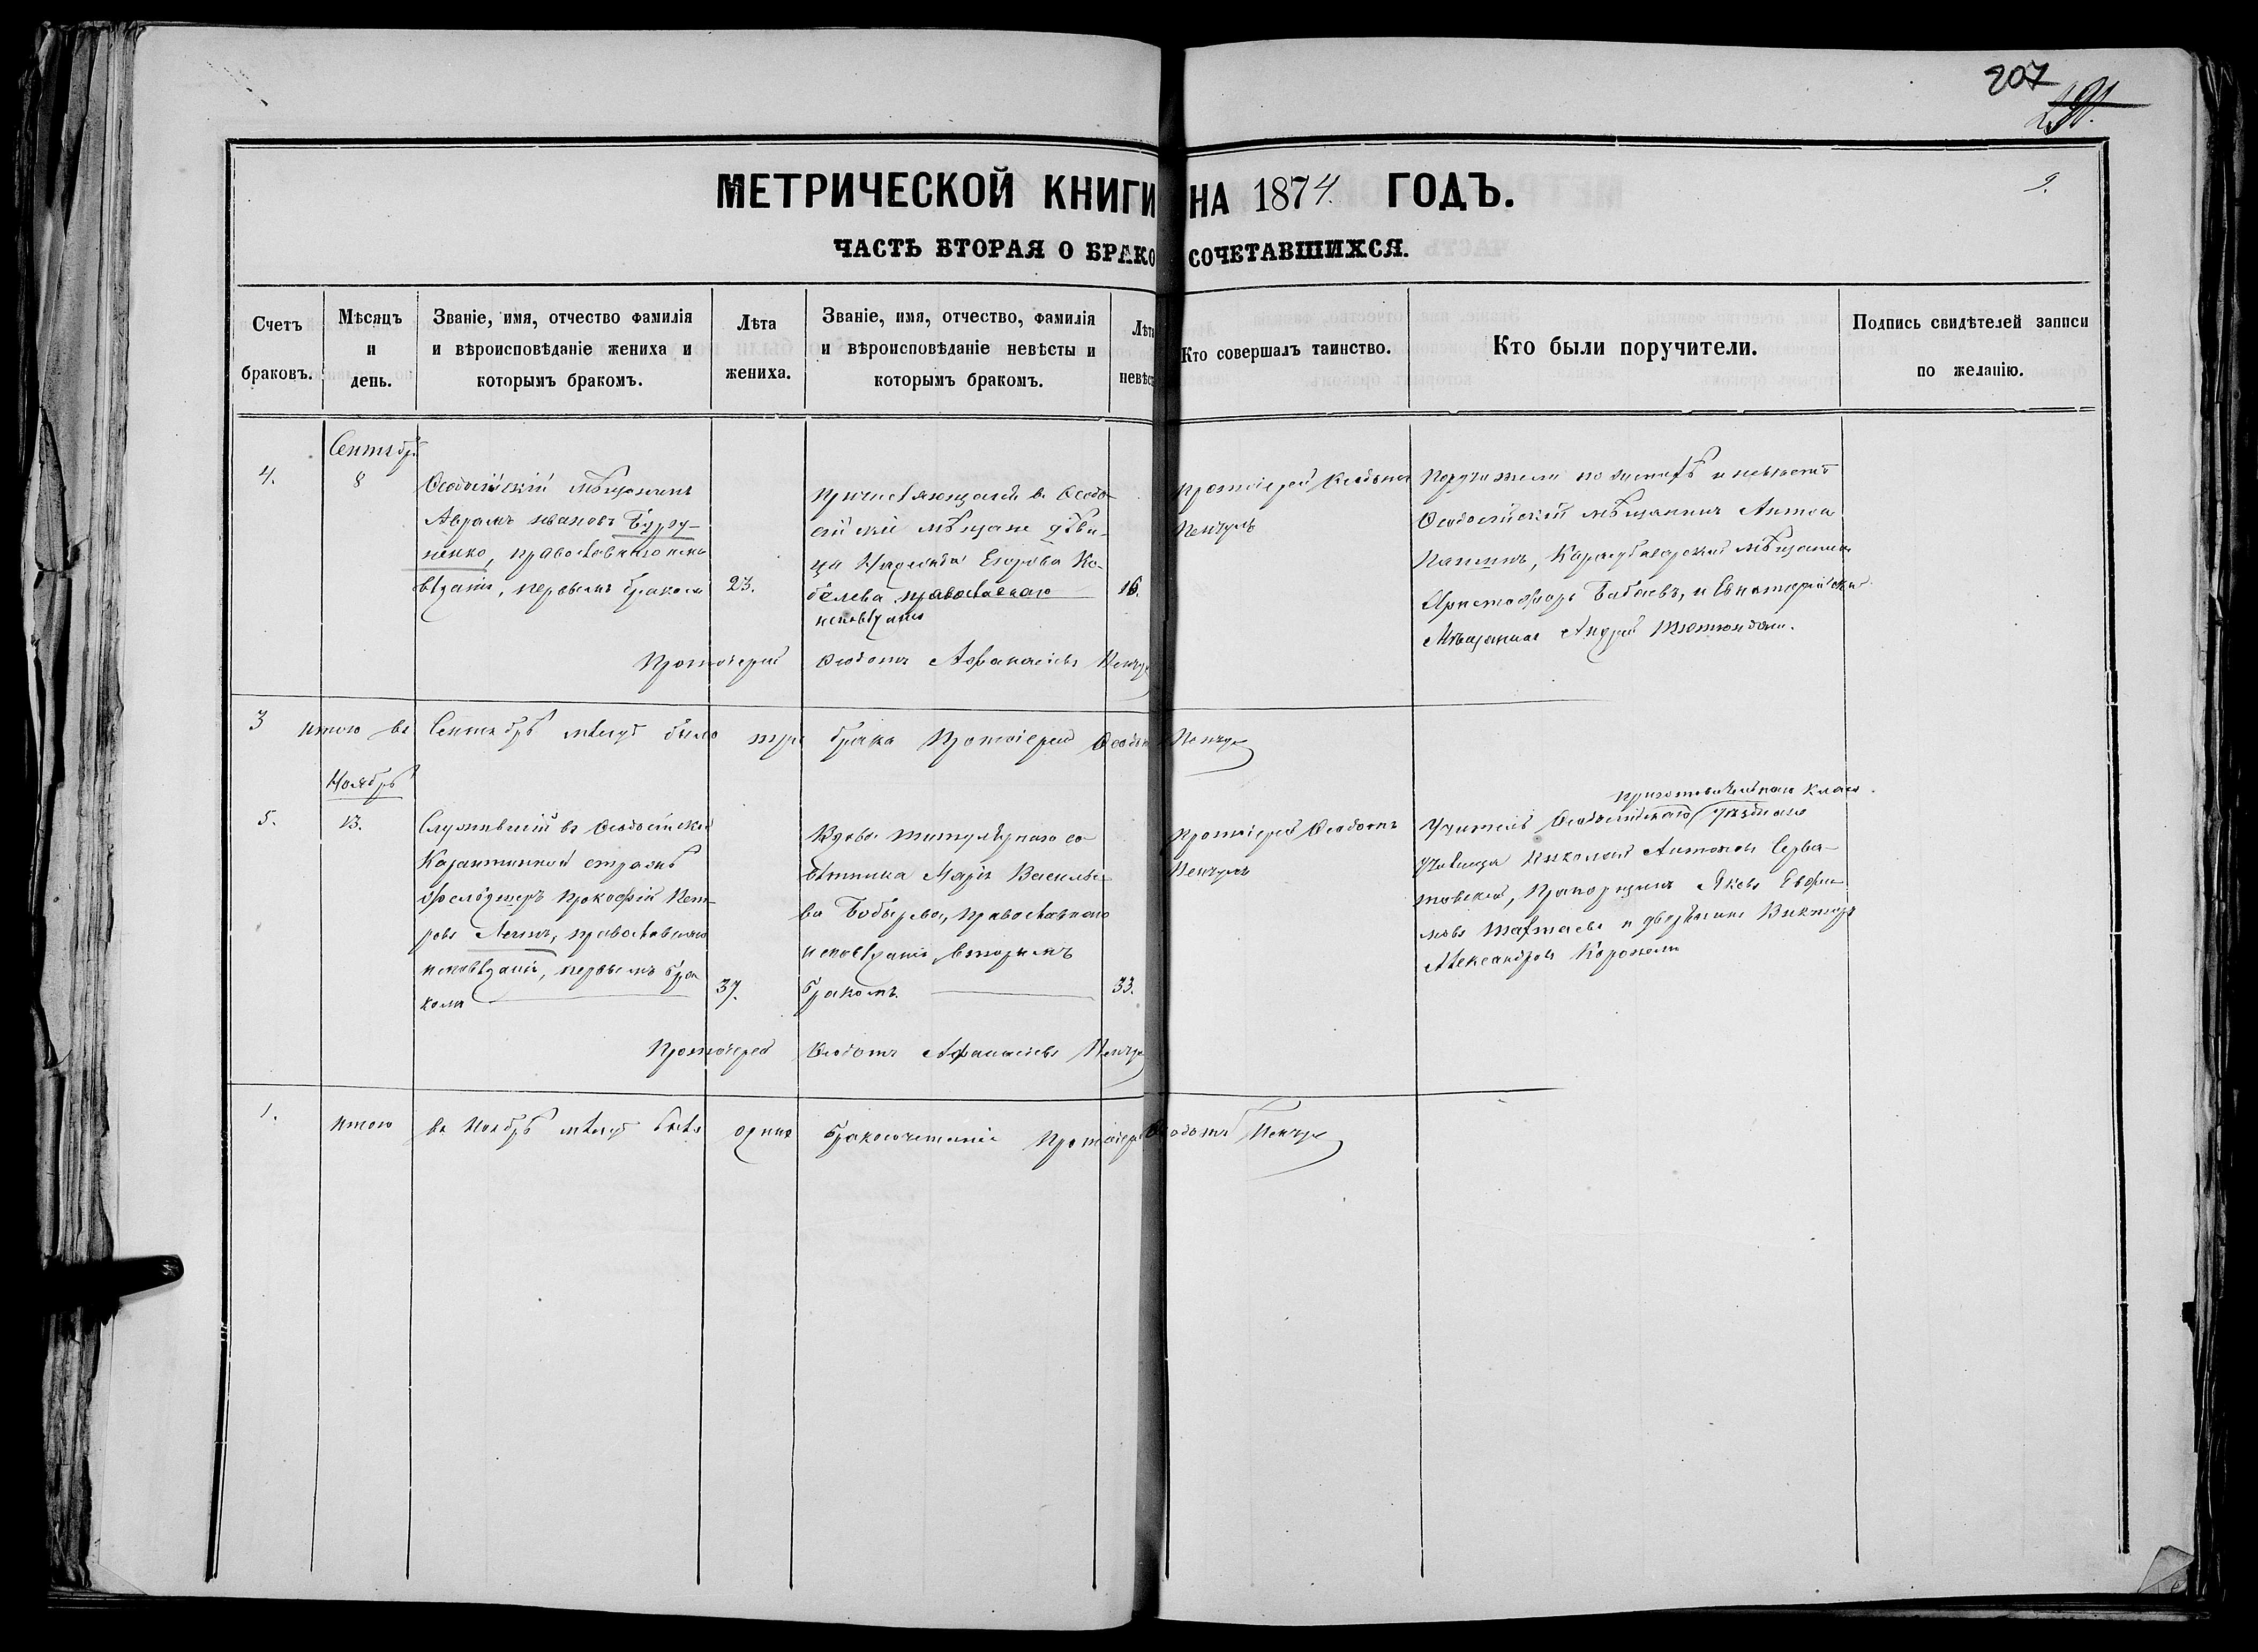 207
МЕТРИЧЕСКОЙ КНИГИ НА 1874. ГОДЪ.
9.
ЧАСТЬ ВТОРАЯ О БРАКОСОЧЕТАВШИХСЯ.
Счетъ браковъ.
Мѣсяцъ и день.
Званіе, имя, отчество фамилія
и вѣроисповѣданіе жениха и
которымъ бракомъ.
Лѣта
жениха.
Званіе, имя, отчество, фамилія
и вѣроисповѣданіе невѣсты и
которымъ бракомъ.
Лѣта
невѣст
Кто совершалъ таинство.
Кто были поручители.
Подпись свидѣтелей записи
по желанію.
Сентябр.
4.
8
Ѳеодосійскій мѣщанинъ
Аврамъ Ивановъ Бурду-
ненко, православнаго испо-
вѣданія, первымъ бракомъ
23.
причисляющаяся въ Ѳеодо-
сійскіе мѣщане дѣви-
ца Егорова Ко-
белева православнаго
исповѣданія
16.
Протоіерей Ѳеодотъ
Пенчулъ
Поручители по женихѣ и невѣстѣ
Ѳеодосійскій мѣщанинъ Антонъ
Папинъ, Карасубазарскій мѣщанинъ
Христофоръ Бабаевъ, и Евпаторійскій
мѣщанинъ Андрей
Протоіерей Ѳеодотъ Аѳанасіевъ Пенчулъ
3 Итого въ Сентябрѣ мѣсяцѣ было три брака Протоіерей Ѳеодотъ Пенчулъ
Ноябрь
5.
13.
Служившій въ Ѳеодосійской
Карантинной стражѣ
фельдшеръ Прокофій Пет-
ровъ православнаго
исповѣданія, первымъ бра-
комъ
37.
Вдова титулярнаго со-
вѣтника Марія Василье-
ва Бобырева, православнаго
исповѣданія, вторымъ
бракомъ.
33.
Протоіерей Ѳеодотъ
Пенчулъ
приготовительнаго класса
Учитель Ѳеодосійскаго уѣзднаго
училища Николай Антоновъ Серва-
товскій, Прапорщикъ Яковъ Евфи-
мовъ и дворянинъ Викторъ
Александровъ
Протоіерей Ѳеодотъ Аѳанасіевъ Пенчулъ
1. Итого въ Ноябрѣ мѣсяцѣ былъ одинъ бракосочетаніе Протоіерей Ѳеодотъ Пенчулъ